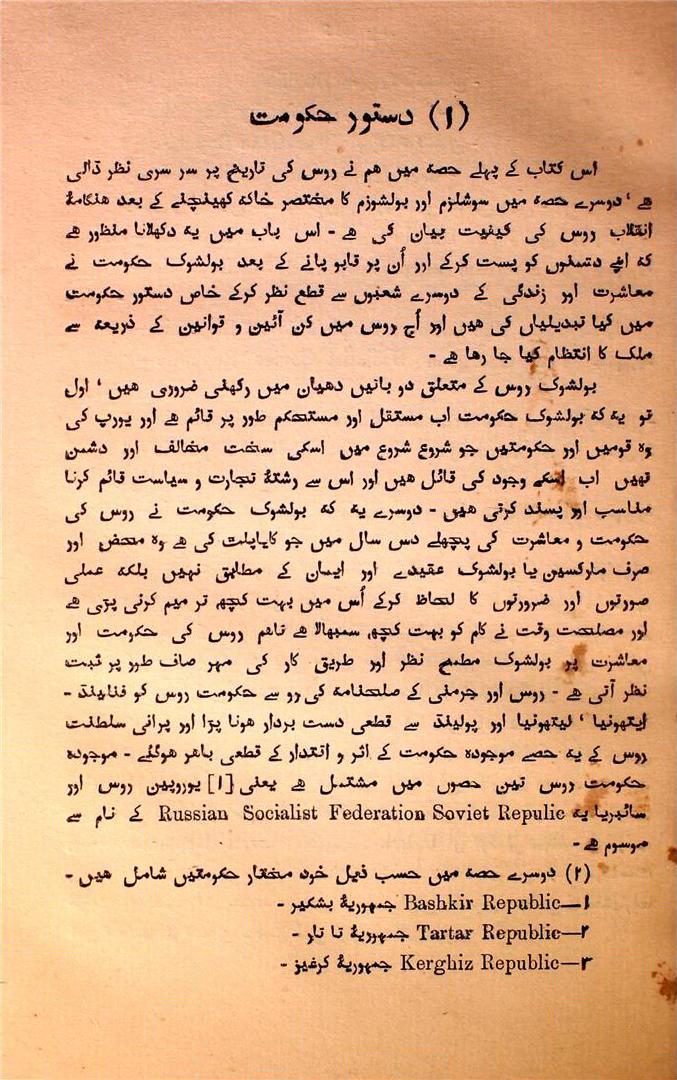 (۱) دستور حکومت
اس کتاب کے پہلے حصہ میں ہم نے روس کی تاریخ پر سر سری نظر ڈالی
ہے ' دوسرے حصہ میں سوشلزم اور بولشوزم کا مختصر خاکہ کھینچنے کے بعد ہنگامۂ
انقلاب روس کی کیفیت بیان کی ہے - اس باب میں یہ دکھلانا منظور ہے
کہ اپنے دشمنوں کو پست کرکے اور اُن پر قابو پانے کے بعد بولشوک حکومت نے
معاشرت اور زندگی کے دوسرے شعبوں سے قطع نظر کرکے خاص دستور حکومت
میں کیا تبدیلیاں کی ہیں اور آج روس میں کن آئین و قوانین کے ذریعہ سے
ملک کا انتظام کیا جا رہا ہے -
بولشوک روس کے متعلق دو باتیں دھیان میں رکھنی ضروری ہیں ' اول
تو یہ کہ بولشوک حکومت اب مستقل اور مستحکم طور پر قائم ہے اور یورپ کی
وہ قومیں اور حکومتیں جو شروع شروع میں اسکی سخت مخالف اور دشمن
تھیں اب اسکے وجود کی قائل ہیں اور اس سے رشتۂ تجارت و سیاست قائم کرنا
مناسب اور پسند کرتی ہیں - دوسرے یہ کہ بولشوک حکومت نے روس کی
حکومت و معاشرت کی پچھلے دس سال میں جو کایاپلٹ کی ہے وہ محض اور
صرف مارکسین یا بولشوک عقیدے اور ایمان کے مطابق نہیں بلکہ عملی
صورتوں اور ضرورتوں کا لحاظ کرکے اُس میں بہت کچھ تر میم کرنی پڑی ہے
اور مصلحت وقت نے کام کو بہت کچھ سمبھالا ہے تاہم روس کی حکومت اور
معاشرت پر بولشوک مطمح نظر اور طریق کار کی مہر صاف طور پر ثبت
نظر آتی ہے - روس اور جرمنی کے صلحنامہ کی رو سے حکومت روس کو فنلینڈ -
ایتھونیا ' لیتھونیا اور پولینڈ سے قطعی دست بردار ہونا پڑا اور پرانی سلطنت
روس کے یہ حصے موجودہ حکومت کے اثر و اقتدار کے قطعی باہر ہوگئے - موجودہ
حکومت روس تین حصوں میں مشتمل ہے یعنی [۱] یوروپین روس اور
سائبریا یہ Russian Socialist Federation Soviet Repulic کے نام سے
موسوم ہے -
(۲) دوسرے حصہ میں حسب ذیل خود مختار حکومتیں شامل ہیں -
۱—Bashkir Republic جمہوریۂ بشکیر -
۲—Tartar Republic جمہوریۂ تا تار -
۳—Kerghiz Republic جمہوریۂ کرغیز -